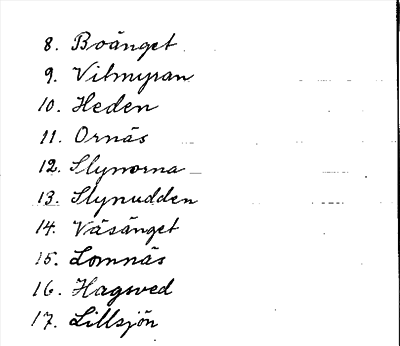 8. Boänget
9. Vitmyran
10. Heden
11. Ornäs
12. Slynorna
13. Slynudden
14. Väsänget
15. Lomnäs
16. Hagsved
17. Lillsjön